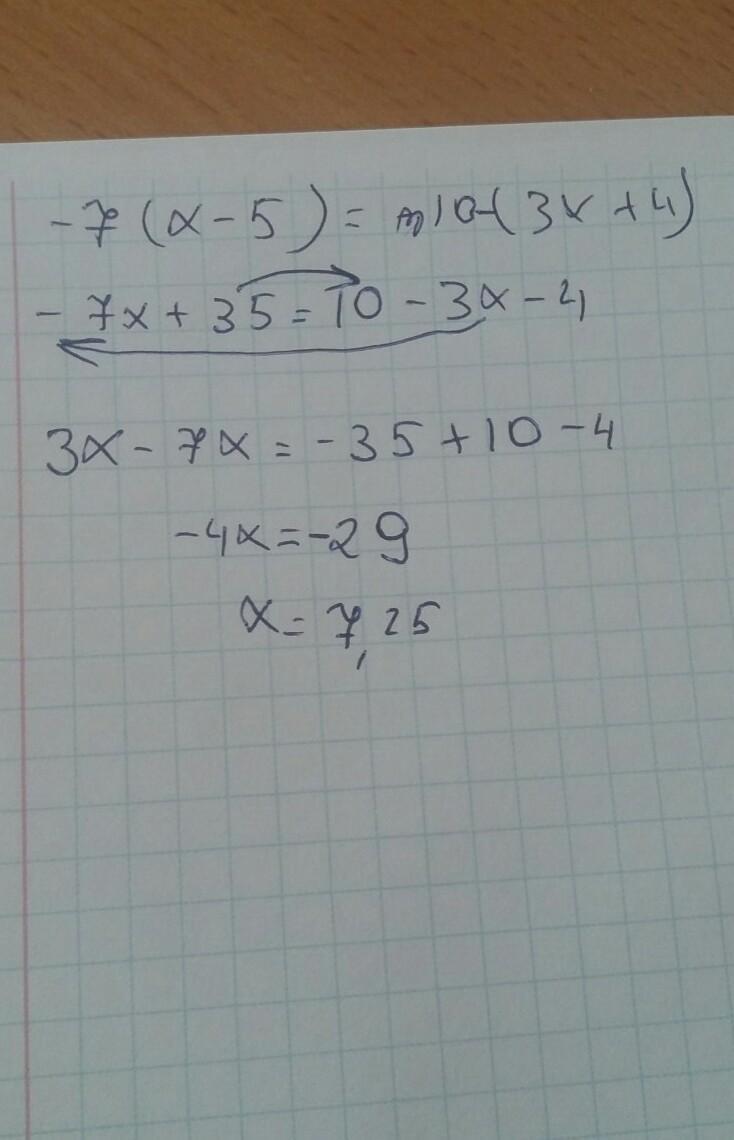 -7(x-5)=10-(3x+4)
-7x+35=10-3x-4
3x-7x=-35+10-4
-4x=-29
x=7,25